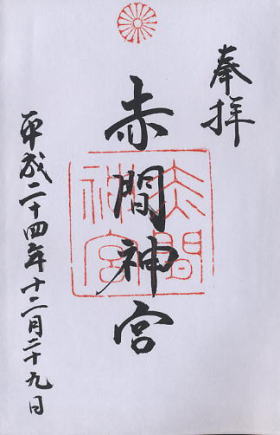 奉拝
赤間神宮
赤間神宮
平成二十四年十二月二十九日